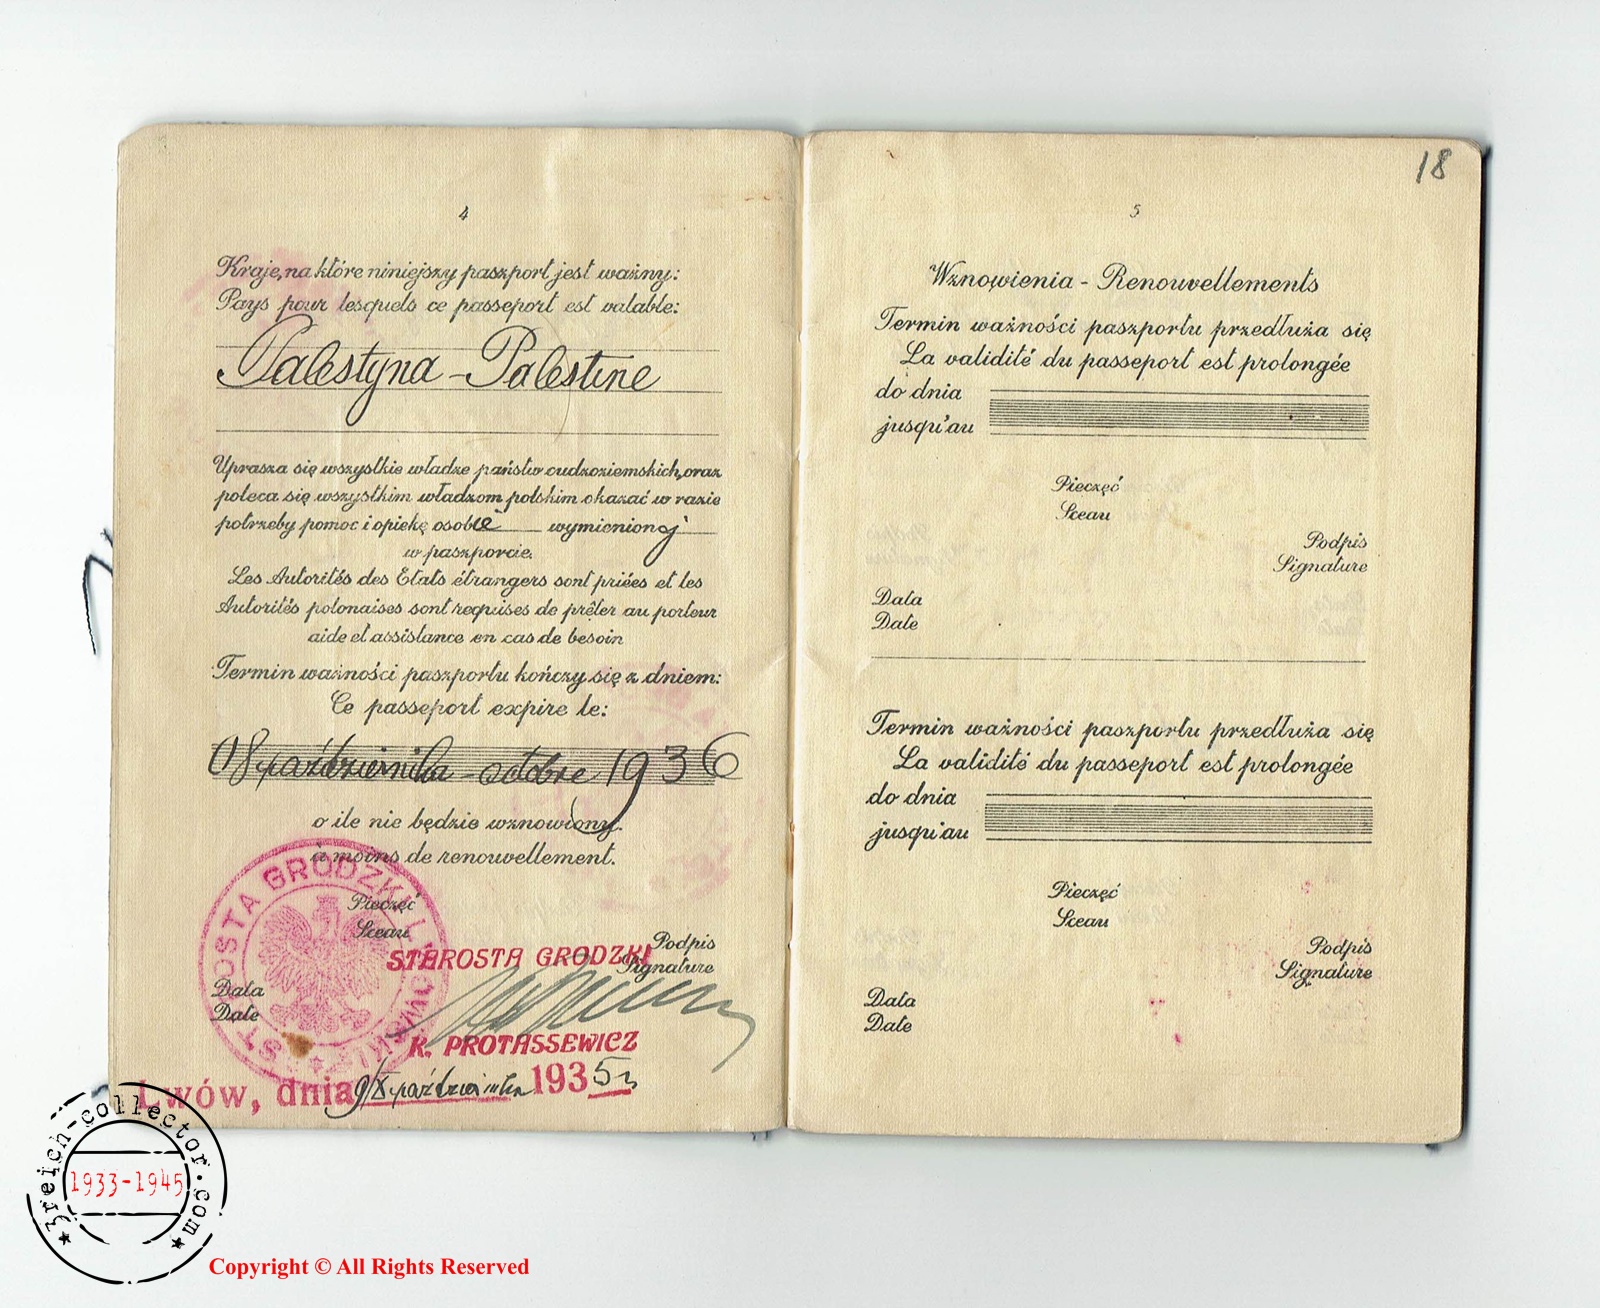 4
Kraje, na które niniejszy paszport jest ważny:
Pays pour lesquels ce passeport est valable:
Palestyna - Palestine
Uprasza się wszystkie władze państw cudzoziemskich, oraz
poleca się wszystkim władzom polskim okazać w razie
potrzeby pomoc i opiekę osobie wymienionej
w paszporcie.
Les Autorités des Etats étrangers sont priées et les
Autorités polonaises sont requises de prêter au porteur
aide et assistance en cas de besoin
Termin ważności paszportu kończy się z dniem:
Ce passeport expire le:
08 października - octobre 1936
o ile nie będzie wznowiony.
à moins de renouvellement.
Pieczęć
Sceau
STAROSTA GRODZKI LWOWSKI
Podpis
STAROSTA GRODZKI
Signature
Data
Date
K. PROTASSEWICZ
Lwów, dnia 9/X października 1935
18
5
Wznowienia - Renouvellements
Termin ważności paszportu przedłuża się
La validité du passeport est prolongée
do dnia
jusqu'au
Pieczęć
Sceau
Podpis
Signature
Data
Date
Termin ważności paszportu przedłuża się
La validité du passeport est prolongée
do dnia
jusqu'au
Pieczęć
Sceau
Podpis
Signature
Data
Date
3reich-collector.com
1933-1945
Copyright © All Rights Reserved